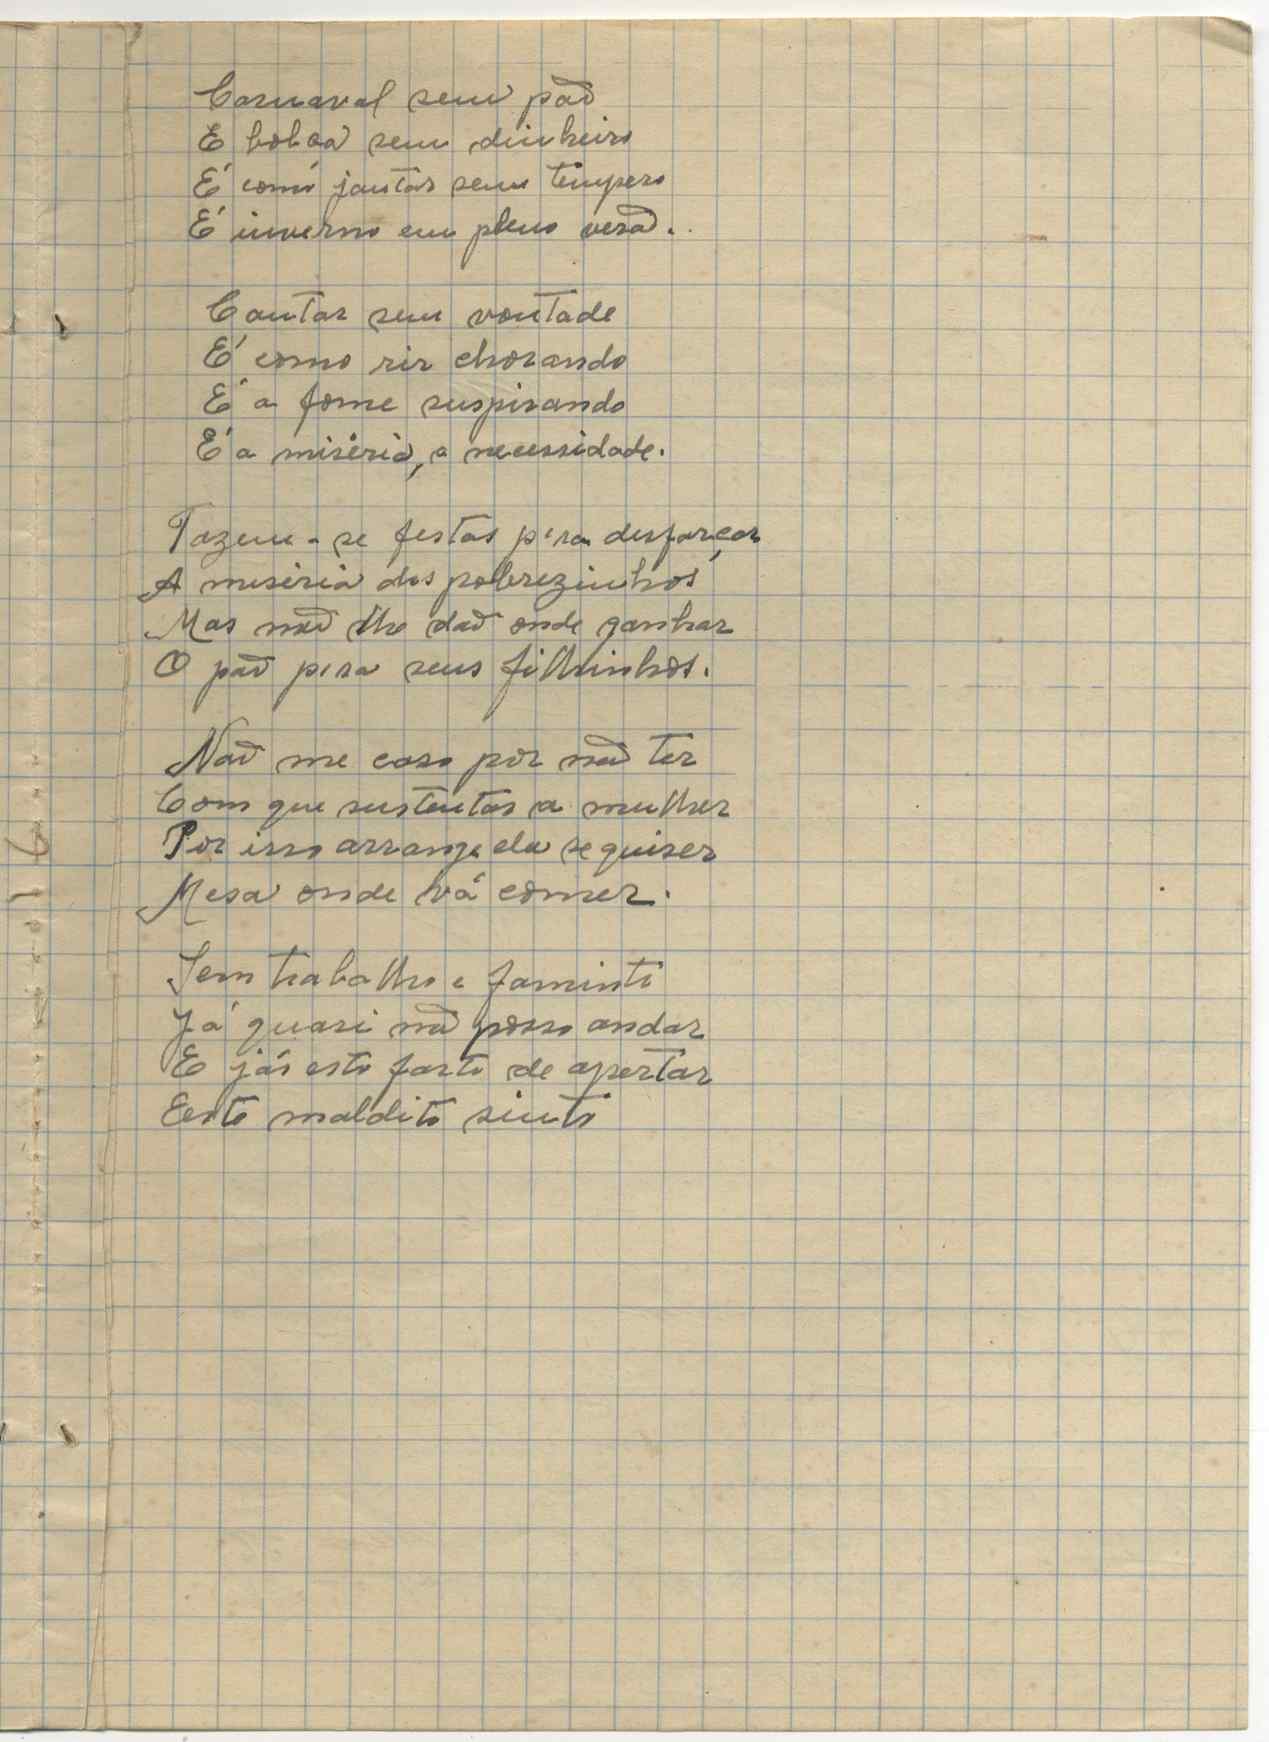 Carnaval sem pão
E bolsa sem dinheiro
É como jantar sem tempero
É inverno em pleno verão.
Cantar sem vontade
É como rir chorando
É a fome suspirando
É a miséria, a necessidade.
Fazem-se festas pera desfarçar
A miséria dos pobrezinhos
Mas não lhe dão onde ganhar
O pão pera seus filhinhos.
Não me caso por não ter
Com que sustentar a mulher
Por isso arranje ela se quiser
Mesa onde vá comer.
Sem trabalho e faminto
Já quasi não posso andar
E já esto farto de apertar
Este maldito sinto